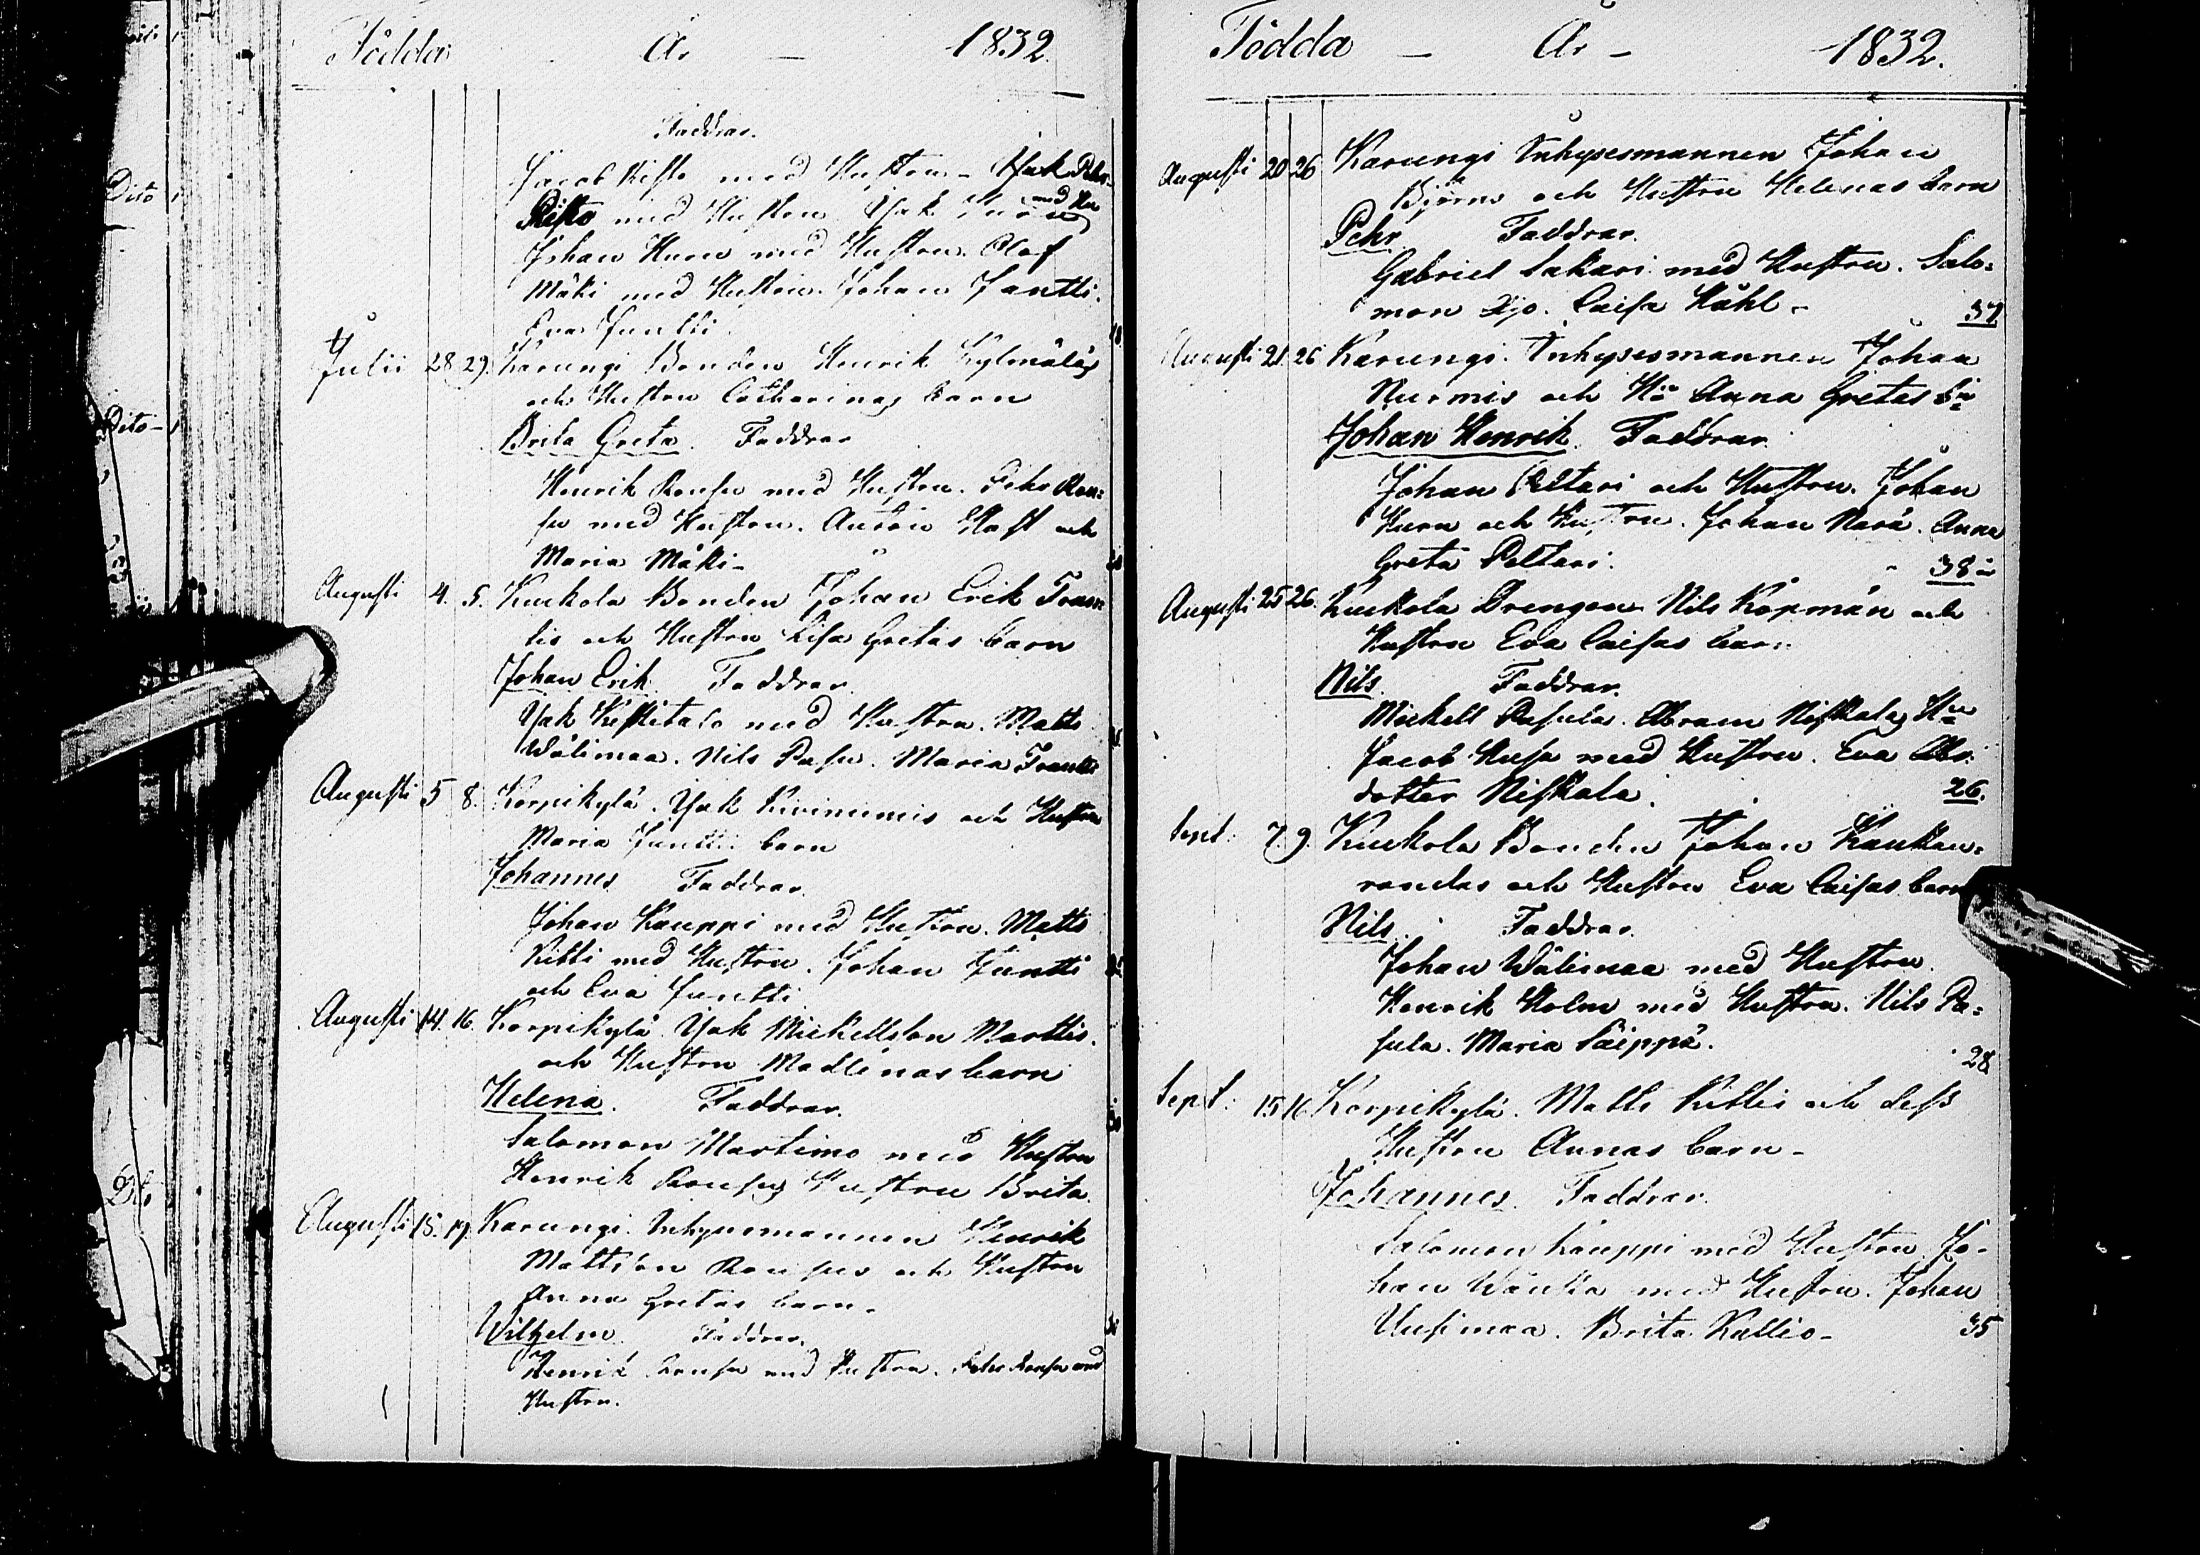 Födda År - 1832.
Faddrar.
Jacob Risto med Hustru - Isak Pehr-
med Hu
Risto med Hustru Isak
Johan Huru med Hustru. Olof
Mäki med Hustru. Johan Juntti.
Eva Juntti.
Julii 28 29. Karungi Bonden Henrik Kylmäläs
och Hustru Catharinas barn
Brita Greta. Faddrar
Henrik Rousu med Hustru. Pehr Rou-
su med Hustru. och
Maria Mäki -
Augusti 4. 5. Kuckola Bonden Johan Erik Fran
tis och Hustru Lisa Gretas barn
Johan Erik Faddrar.
Isak Keskitalo med Hustru. Matts
Wälimaa. Nils Pasu. Maria Frantti
Augusti 5 8. Korpikylä. Isak Kiviniemis och Hustru
Maria Junttis barn
Johannes Faddrar.
Johan Kauppi med Hustru. Matts
Kitti med Hustru. Johan Juntti
och Eva Juntti
Augusti 14. 16. Korpikylä Isak Mickellson Marttis.
och Hustru Madlenas barn
Helena. Faddrar.
Salomon Martimo med Hustru
Henrik Rousus Hustru Brita.
Augusti 15. 19. Karungi. Inhysesmannen Henrik
Mattson Rousus och Hustru
Anna Gretas barn.
Wilhelm Faddrar.
Henrik Rousu med Hustru. Pehr Rousu med
Hustru.
Födda - År - 1832.
Augusti 20 26 Karungi Inhysesmannen Johan
Björns och Hustru Helenas barn
Pehr Faddrar.
Gabriel Sakari med Hustru. Salo-
mon Ojo. Caisa Ståhl - 37
Augusti 21. 26 Karungi. Inhysesmannen Johan
Nurmis och Hu Anna Gretas bn
Johan Henrik. Faddrar
Johan Peltari och Hustru. Johan
Huru och Hustru. Johan Nara. Anna
Greta Peltari. 38
Augusti 25 26. Kuckola Drengen Nils Kopmän och
Hustru Eva Caisas barn
Nils. Faddrar.
Mickell Pasula. Abram Niskalas Hu
Jacob Husa med Hustru. Eva Abr.
dotter Niskala. 26.
Sept: 7. 9. Kuckola Bonden Johan Kaukan-
randas och Hustru Eva Caisas barn
Nils. Faddrar.
Johan Wälimaa med Hustru.
Henrik Holm med Hustru. Nils Pa-
sula. Maria Säippä. 28
Sept: 15 16 Korpikylä. Matts Kittis och dess
Hustru Annas barn -
Johannes. Faddrar.
Salomon Kauppi med Hustru. Jo-
han Wänkä med Hustru. Johan
Uusimaa. Brita Kallio - 35